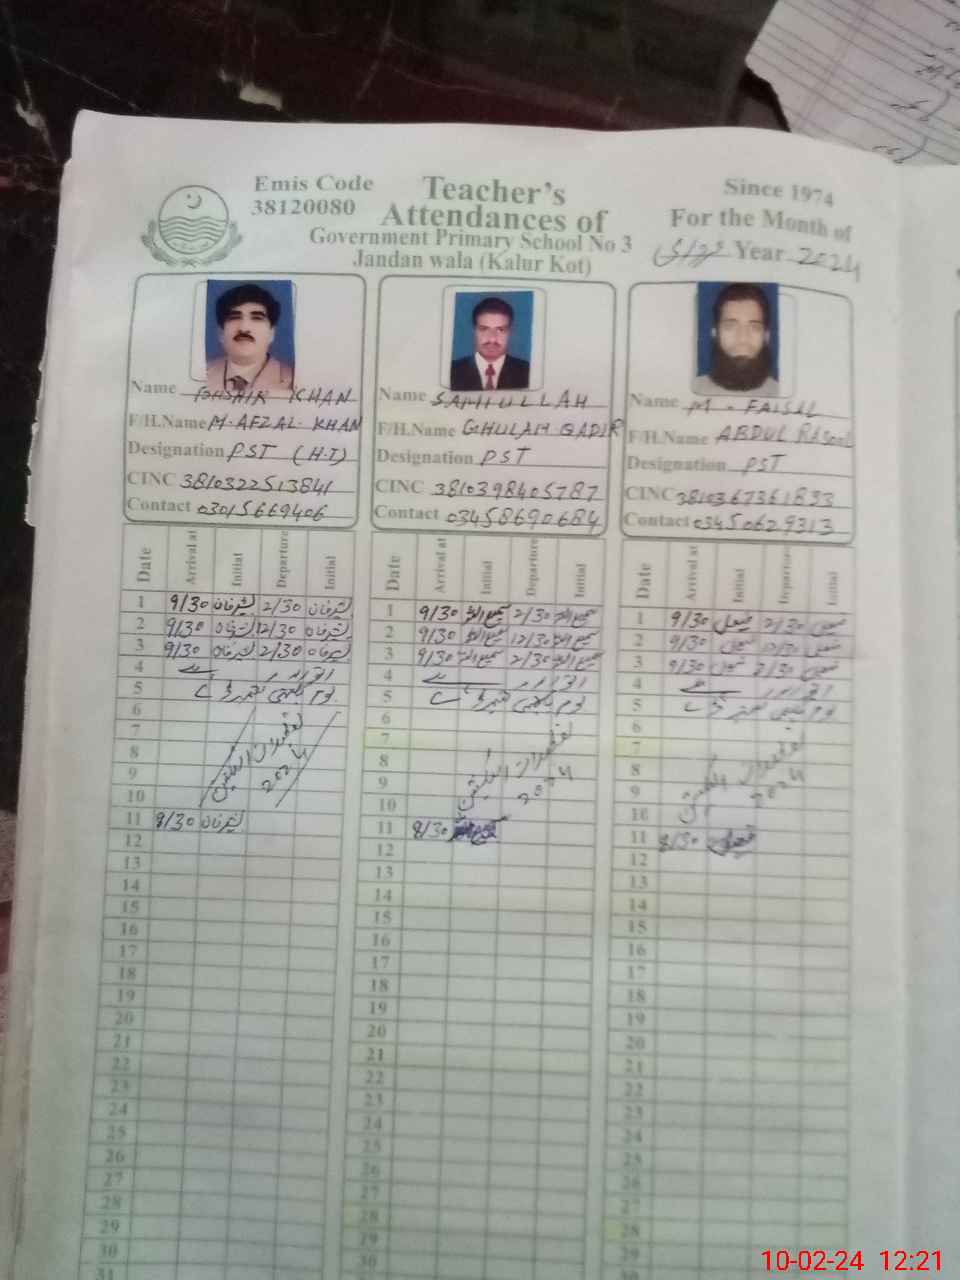 Emis Code
38120080
Teacher's
Attendances of
Government Primary School No 3
Jandan wala (Kalur Kot)
Since 1974
For the Month of
فروری Year 2024
Name KHAN
F/H.Name M. AFZAL KHAN
Designation PST (H.T)
CINC 3810322513841
Contact 03015669406
Name SAMIULLAH
F/H.Name GHULAM QADIR
Designation PST
CINC 3810398405787
Contact 03458690684
Name M. FAISAL
F/H.Name ABDUL RASOOL
Designation PST
CINC 3810367361833
Contact 03450629313
Date Arrival at Initial Departure Initial
1 9/30 بشیرخان 2/30 بشیرخان
2 9/30 بشیرخان 12/30 بشیرخان
3 9/30 بشیرخان 2/30 بشیرخان
4 اتوار
5 یوم یکجہتی کشمیر
6
7
8
9
2024
10
11 8/30 بشیرخان
12
13
14
15
16
17
18
19
20
21
22
23
24
25
26
27
28
29
30
31
Date Arrival at Initial Departure Initial
1 9/30 سمیع اللہ 2/30 سمیع اللہ
2 9/30 سمیع اللہ 12/30 سمیع اللہ
3 9/30 سمیع اللہ 2/30 سمیع اللہ
4 اتوار
5 یوم یکجہتی کشمیر
6
7
8
9
2024
10
11 8/30
12
13
14
15
16
17
18
19
20
21
22
23
24
25
26
27
28
29
30
Date Arrival at Initial Departure Initial
1 9/30 فیصل 2/30 فیصل
2 9/30 فیصل 12/30 فیصل
3 9/30 فیصل 2/30 فیصل
4 اتوار
5 یوم یکجہتی کشمیر
6
7
8
9
2024
10
11 8/30 فیصل
12
13
14
15
16
17
18
19
20
21
22
23
24
25
26
27
28
29
30
10-02-24 12:21